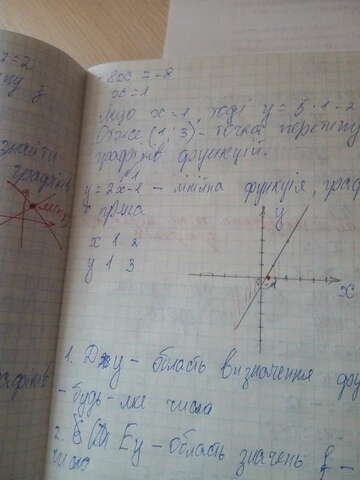 -8x = -8
x = 1
Якщо x = 1, тоді y = 5 · 1 - 2
Отже (1; 3) - точка перетину
графіків функцій.
y = 2x - 1 - лінійна функція, граф
пряма
x 1 2
y 1 3
y
x
1. Dy - область визначення фу
- будь-яке число
2. Ey - область значень f -
число
знайти
графіків